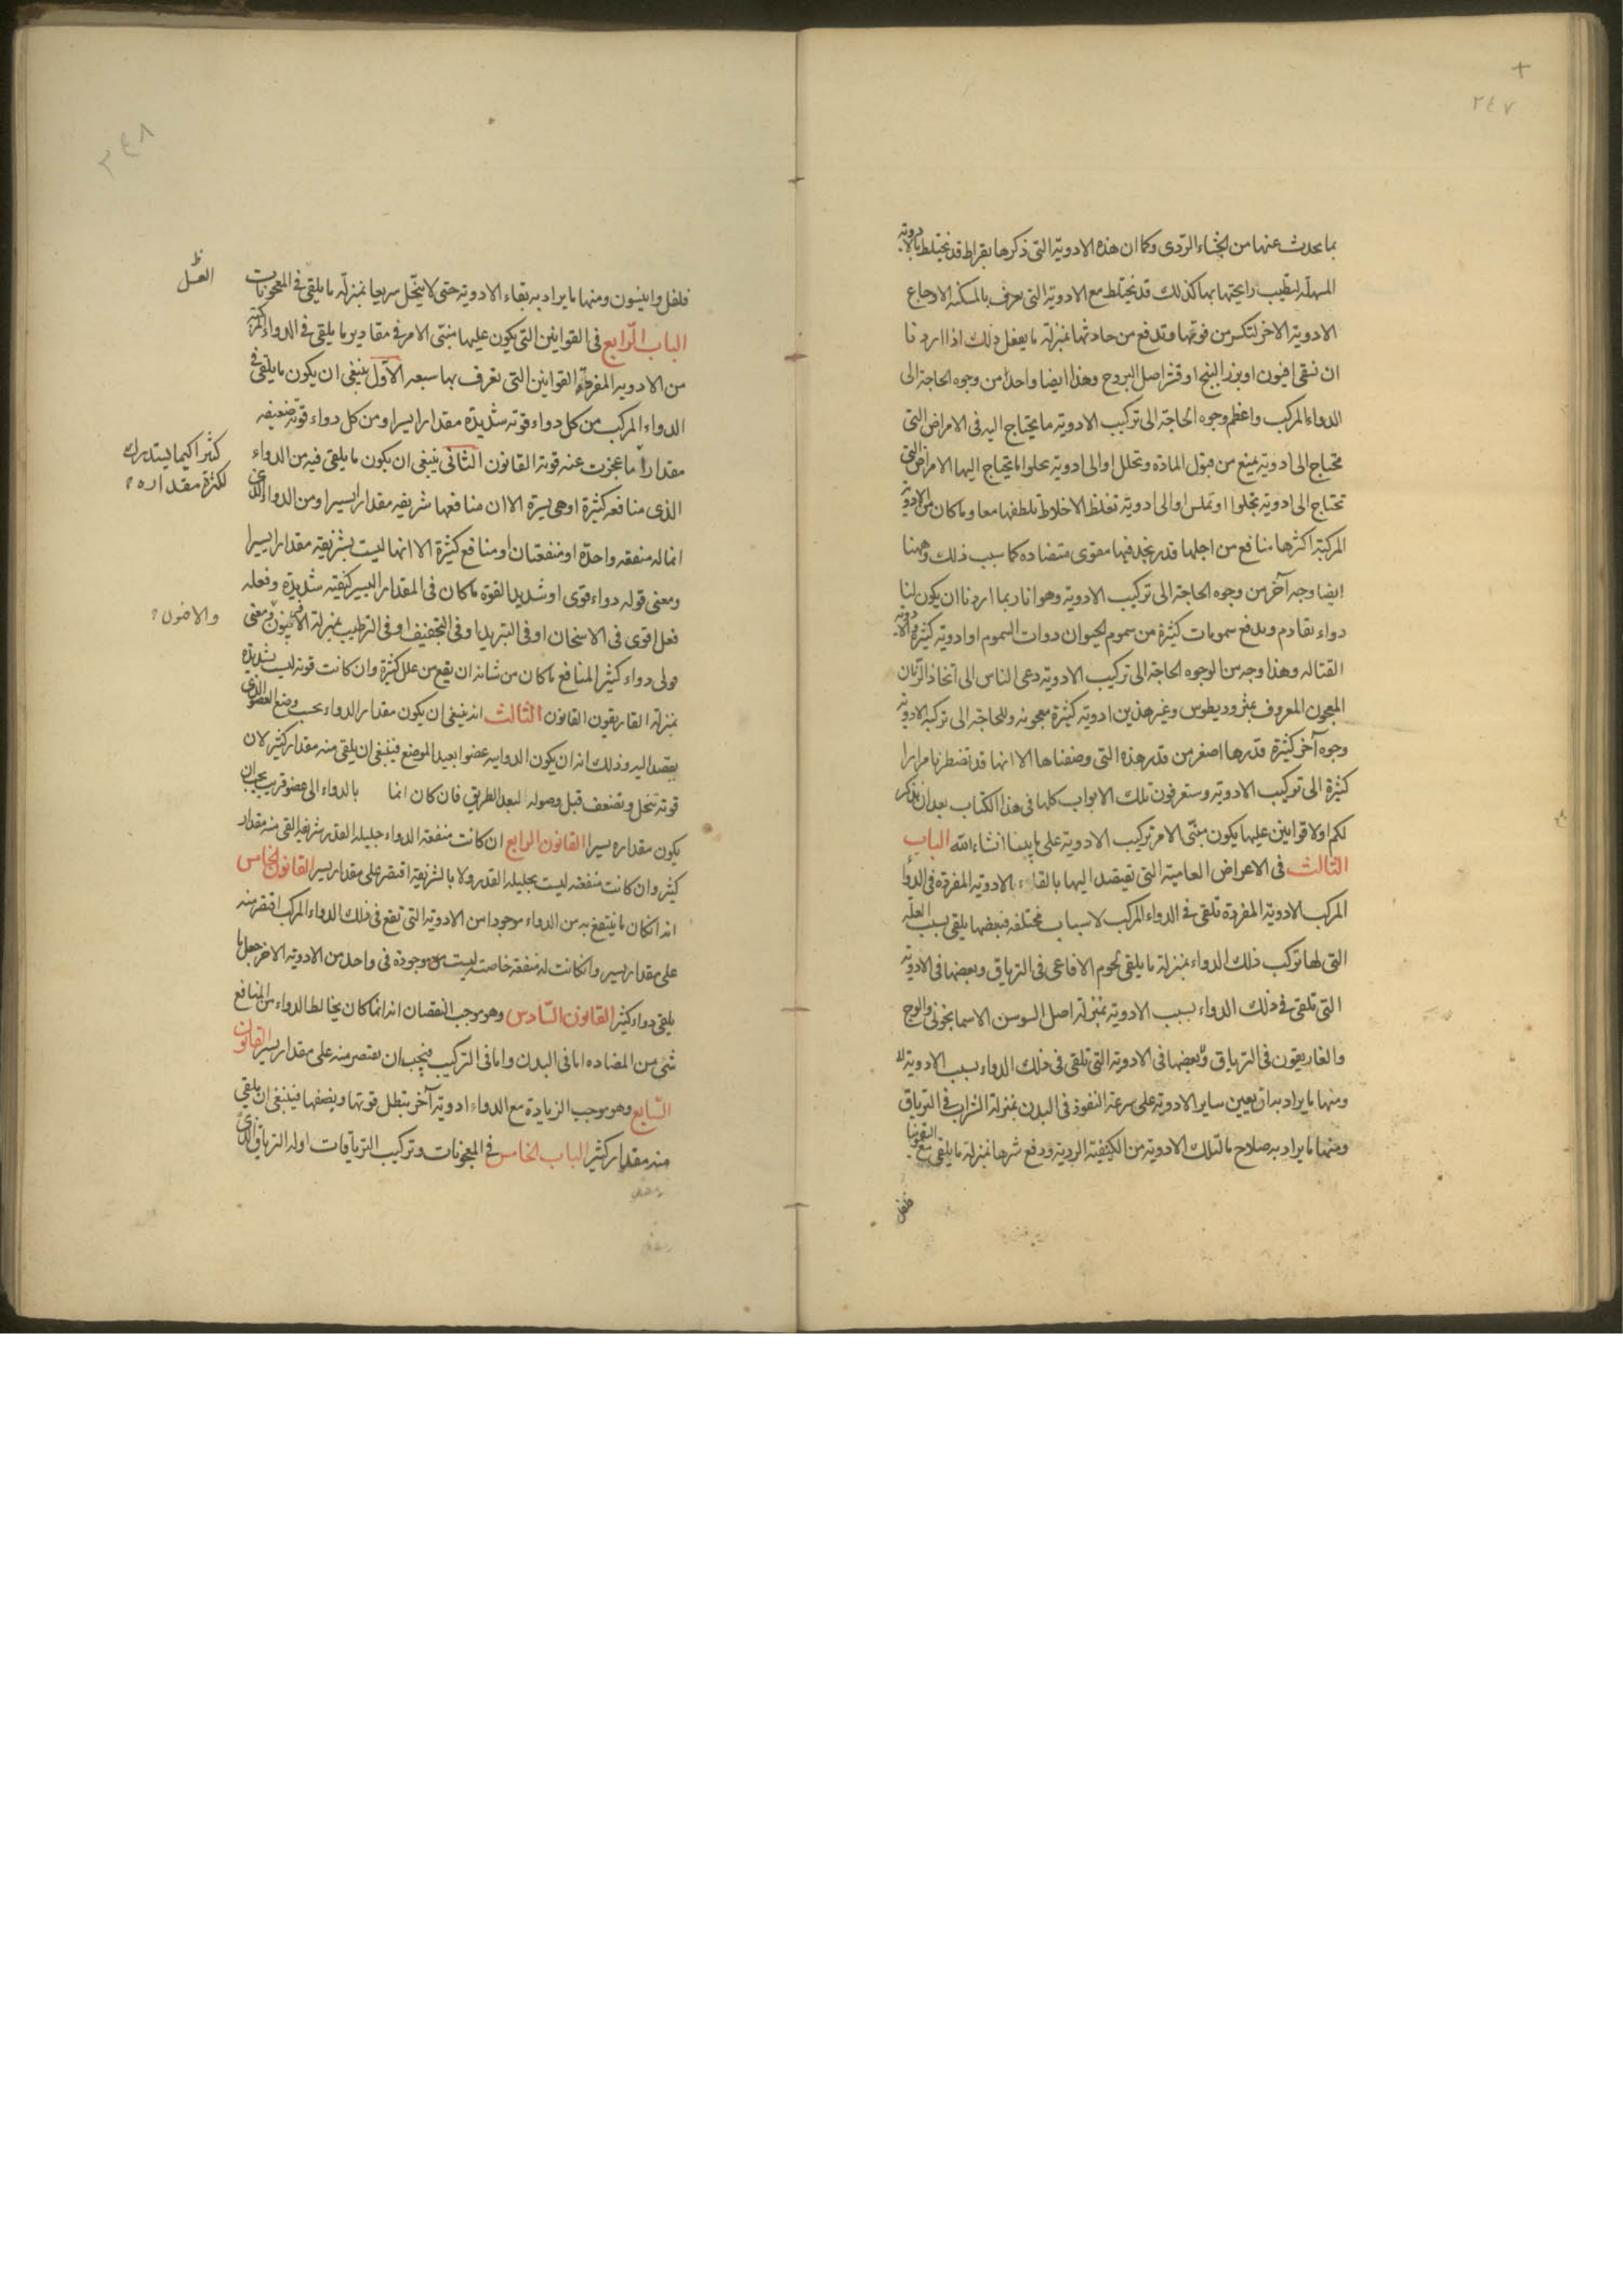 ٢٤٧
بما يحدث عنها من الجشاء الردى وكما ان هذه الادوية التى ذكرها بقراط قد تختلط بالادوية
المسهلة لتطيب رايحتها بها كذلك قد تختلط مع الادوية التى تعرف بالمسكنة الاوجاع
الادوية الاخر لتكسر من قوتها وتدفع من حادثها بمنزلة ما يفعل ذلك اذا اردنا
ان نسقى افيون او بزر البنج او قشر اصل اليبروح وهذا ايضا واحدا من وجوه الحاجة الى
الدواء المركب واعظم وجوه الحاجة الى تركيب الادوية ما يحتاج اليه فى الامراض التى
تحتاج الى ادوية يمنع من قبول المادة وتحلل او الى ادوية تحلوا ما يحتاج اليها الامراض التى
تحتاج الى ادوية تجلوا او تملس او الى ادوية تغلظ الاخلاط تلطفها معا وما كان من الادوية
المركبة اكثرها منافع من اجلها قد نجد فيها مقوى متضاده كما سبب ذلك وههنا
ايضا وجه آخر من وجوه الحاجة الى تركيب الادوية وهو انا ربما اردنا ان يكون لنا
دواء نقادم وبدفع سمومات كثيرة من سموم الحيوان دوات السموم او ادوية كثيرة والادوية
القتاله وهذا وجه من الوجوه الحاجة الى تركيب الادوية دعى الناس الى اتخاذ الترياق
المعجون المعروف بمثروديطوس وغير هذين ادوية كثيرة معجونه وللحاجة الى تركيب الادوية
وجوه آخر كثيرة قدرها اصغر من قدر هذه التى وصفناها الا انها قد تضطرنا مرارا
كثيرة الى تركيب الادوية وستعرفون تلك الابواب كلها فى هذا الكتاب بعد ان نذكر
لكم اولا قوانين عليها يكون مبنى الامر تركيب الادوية على ما بينا انشاء الله الباب
الثالث فى الاعراض العامية التى تقصد اليها بالقاء الادوية المفردة فى الدوا
المركب الادوية المفردة تلقى فى الدواء المركب لاسباب مختلفه فبعضها يلقى بسبب العلة
التى لها تركب ذلك الدواء بمنزلة ما يلقى لحوم الافاعى فى الترياق وبعضها فى الادوية
التى تلقى فى ذلك الدواء بسبب الادوية بمنزلة اصل السوسن الاسمانجونى والوج
والغاريقون فى الترياق وبعضها فى الادوية التى تلقى فى ذلك الدواء بسبب الادوية لا
ومنها ما يراد به ان يعين ساير الادوية على سرعة النفوذ فى البدن بمنزلة الشراب فى الترياق
ومنها ما يراد به صلاح ما لتلك الادوية من الكيفية الردية ودفع شرها بمنزلة ما يلقى مع السقمونيا
فلفل
٢٤٨
فلفل وانيسون ومنها ما يراد به بقاء الادوية حتى لا ينحل سريعا بمنزلة ما يلقى فى المعجونات
العسل
الباب الرابع فى القوانين التى يكون عليها مبنى الامر فى مقادير ما يلقى فى الدواء المركب
من الادوية المفردة القوانين التى تعرف بها سبعه الاول ينبغى ان يكون ما يلقى فى
الدواء المركب من كل دواء قوته شديدة مقدارا يسيرا ومن كل دواء قوته ضعيفه
مقدارا ما عجزت عنه قوته القانون الثانى ينبغى ان يكون ما يلقى فيه من الدواء
كثيرا كيما يستدرك
لكثرة مقداره
الذى منافعه كثيرة او هى يسيرة الا ان منافعها شريفه مقدارا يسيرا ومن الدواء الذى
انما له منفعه واحدة او منفعتان او منافع كثيرة الا انها ليست بشريفة مقدارا يسيرا
ومعنى قوله دواء قوى او شديد القوة ما كان فى المقدار اليسير كيفيته شديدة وفعله
فعل اقوى فى الاسخان او فى التبريد او فى التجفيف او فى الترطيب بمنزلة الافيون ومعنى
قولى دواء كثير المنافع ما كان من شانه ان يقع من علل كثيرة وان كانت قوته ليست بشديدة
بمنزلة الغاريقون القانون الثالث انه ينبغى ان يكون مقدار الدواء بحسب وضع العضو الذى
يقصد اليه وذلك انه ان يكون الدوابه عضوا بعيد الموضع فينبغى ان يلقى منه مقدار كثير لان
قوته تنحل وتضعف قبل وصوله لبعد الطريق فان كان انما بالدواء الى عضو قريب يجب ان
يكون مقداره يسيرا القانون الرابع ان كانت منفعة الدواء جليله القدر شريفه القى منه مقدار
كثير وان كانت منفعته ليست بجليله القدر ولا بالشريفة اقتصر على مقدار يسير القانون الخامس
انه انكان ما ينتفع به من الدواء موجودا من الادوية التى تقع فى ذلك الدواء المركب اقتصر منه
على مقدار يسير وانكانت له منفعة خاصة ليست موجودة فى واحد من الادوية الاخر جعل ما
يلقى دواء كثير القانون السادس وهو موجب النقصان انه انما كان يخالط الدواء من المنافع
شئ من المضاده اما فى البدن واما فى التركيب فيجب ان يقتصر منه على مقدار يسير القانون
السابع وهو موجب الزيادة مع الدواء ادوية آخر تبطل قوتها ويضعفها فينبغى ان يلقى
منه مقدار كثير الباب الخامس فى المعجونات وتركيب الترياقات اوله الترياق الذى